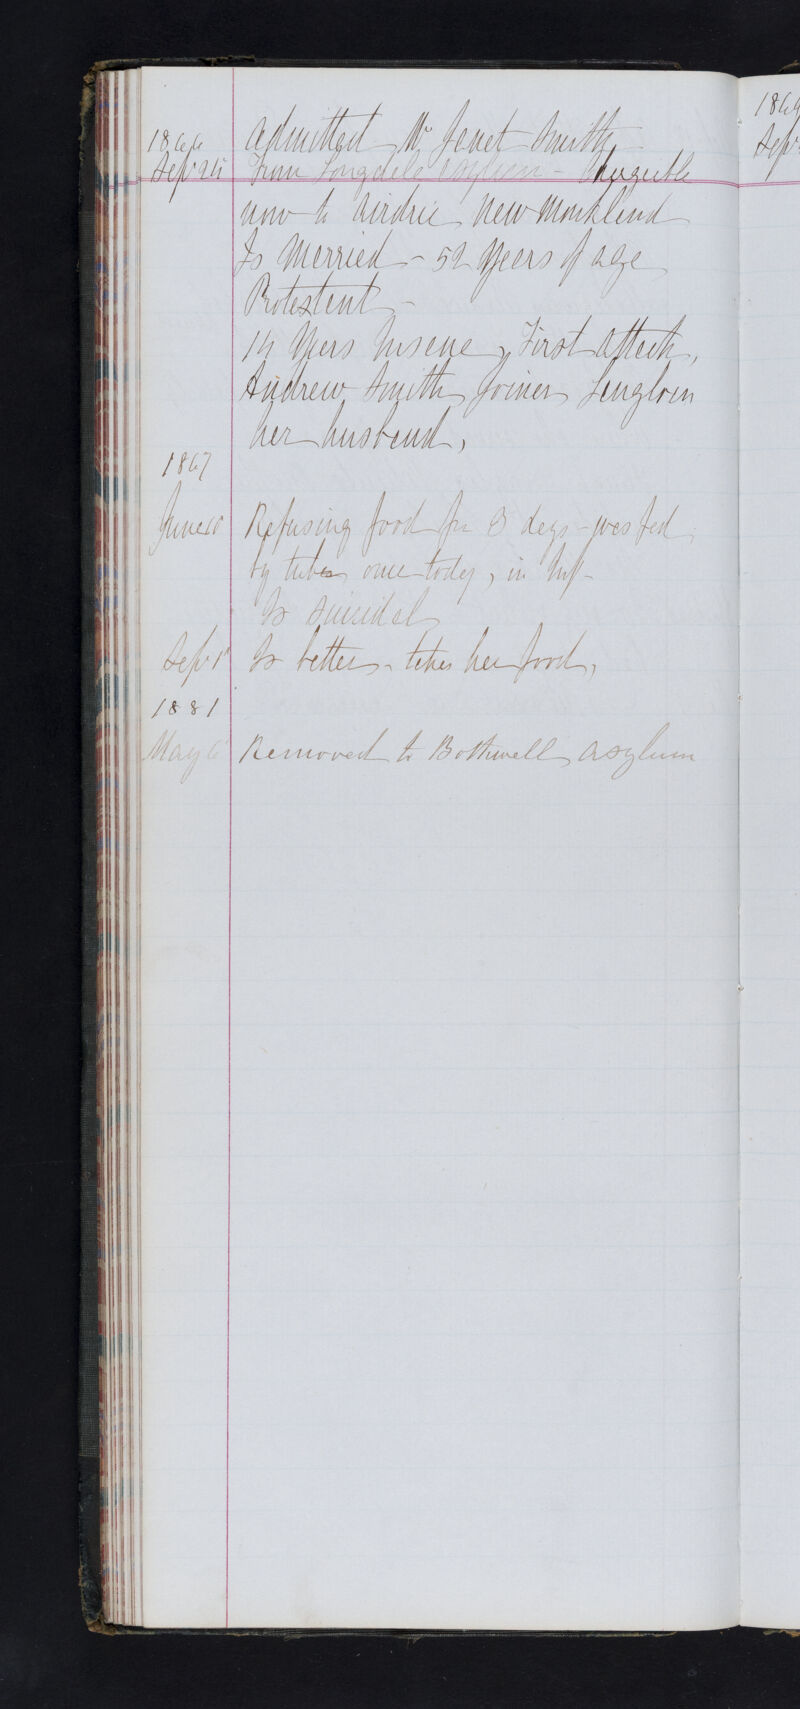 1866 Admitted Mrs Janet Smith
Sepr 25 From Longdale Asylum - Chargeable
now to Airdrie, New Monkland
Is Married - 52 Years of age
Protestant -
14 Years Insane, First Attack,
Andrew Smith Joiner Langloan
her husband,
1867
June 10 Refusing food for 3 days - was fed
by tube once today, in
Is suicidal
Sepr 1 Is better - takes her food,
1881
May 6 Removed to Bothwell Asylum
1869
Sepr